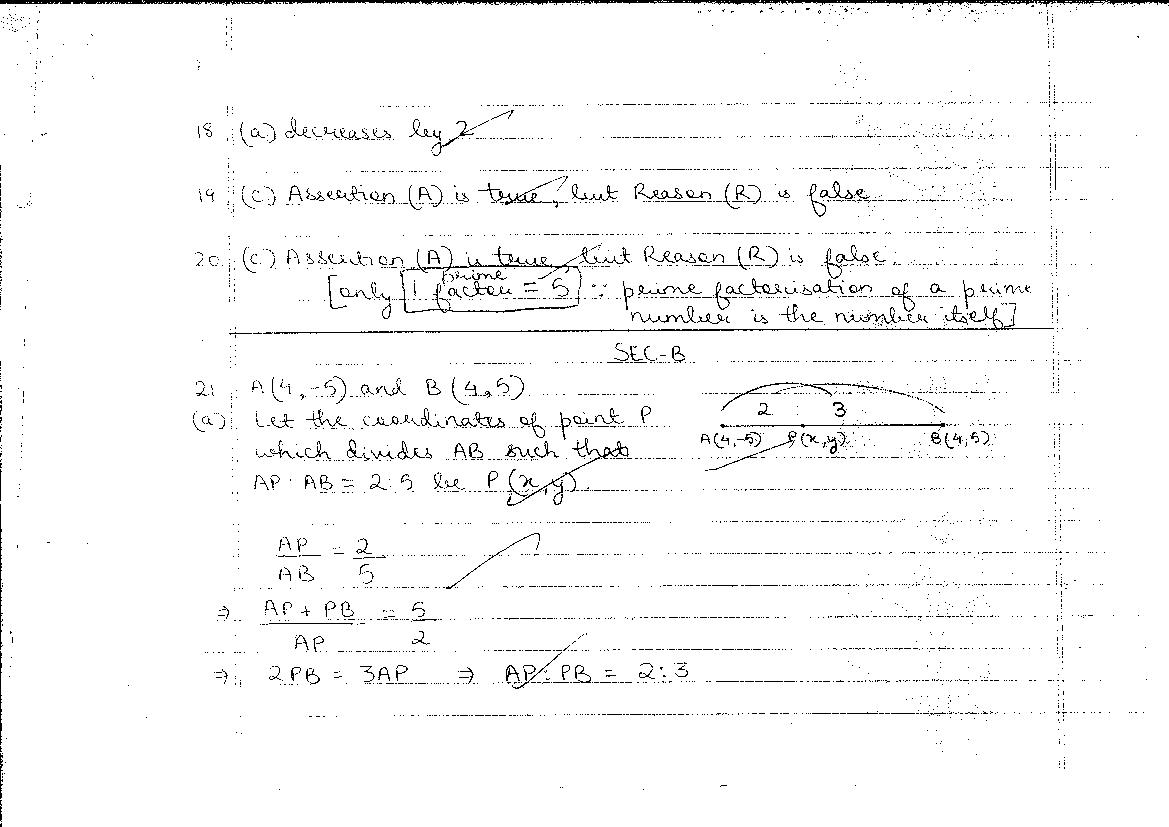 18 (a) decreases by 2
19 (c) Assertion (A) is true, but Reason (R) is false
20 (c) Assertion (A) is true, but Reason (R) is false.
[only 1 prime factor = 5 ∵ prime factorisation of a prime
number is the number itself]
SEC-B
21 A(4,-5) and B(4,5)
(a) Let the coordinates of point P
which divides AB such that
AP : AB = 2:5 be P(x,y).
2 : 3
A(4,-5) P(x,y) B(4,5)
AP/AB = 2/5
⇒ (AP + PB)/AP = 5/2
⇒ 2PB = 3AP ⇒ AP : PB = 2:3